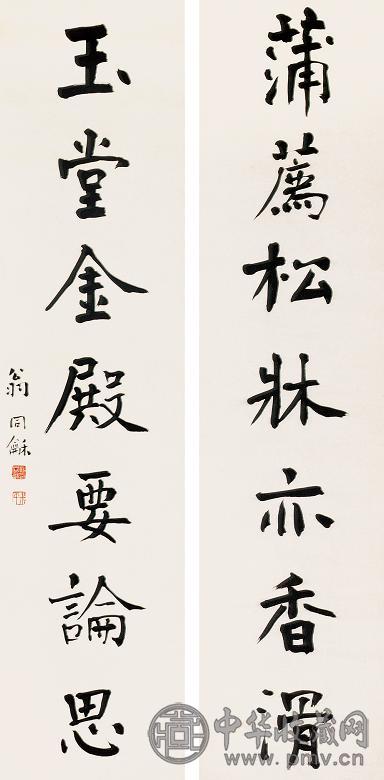 蒲薦松牀亦香滑
玉堂金殿要論思
翁同龢
中华收藏网
www.pmv.cn